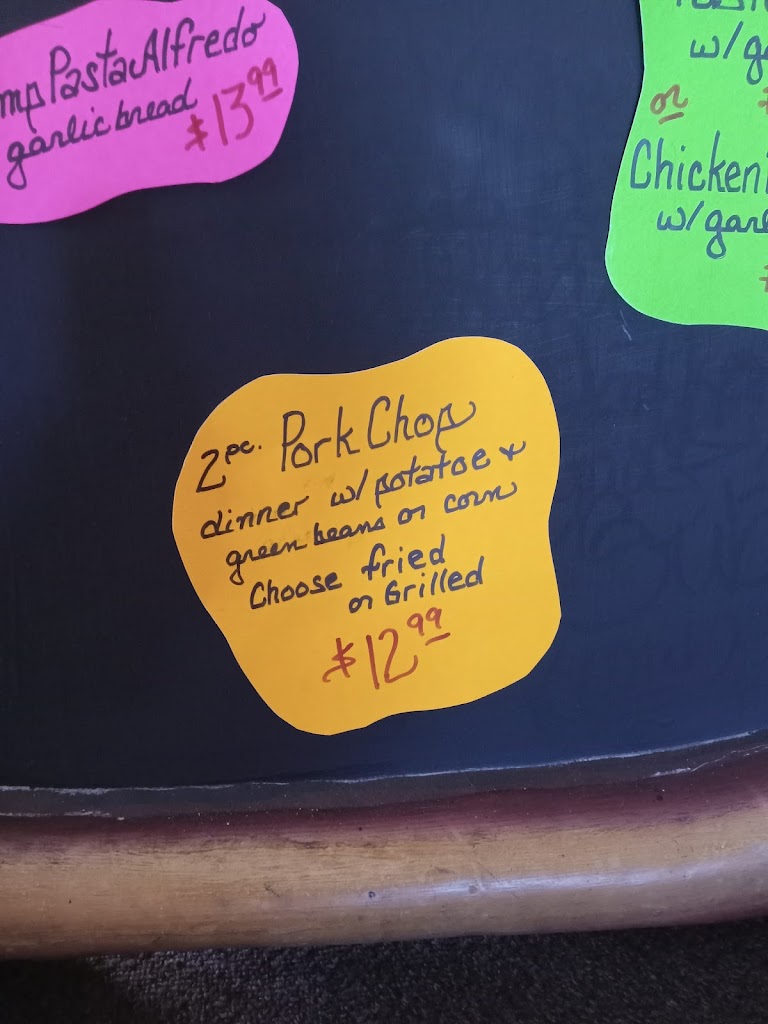 Pasta Alfredo
garlic bread $13.99
w/
or
Chicken
w/
2 pc. Pork Chop
dinner w/ potatoe &
green beans or corn
Choose fried
or Grilled
$12.99